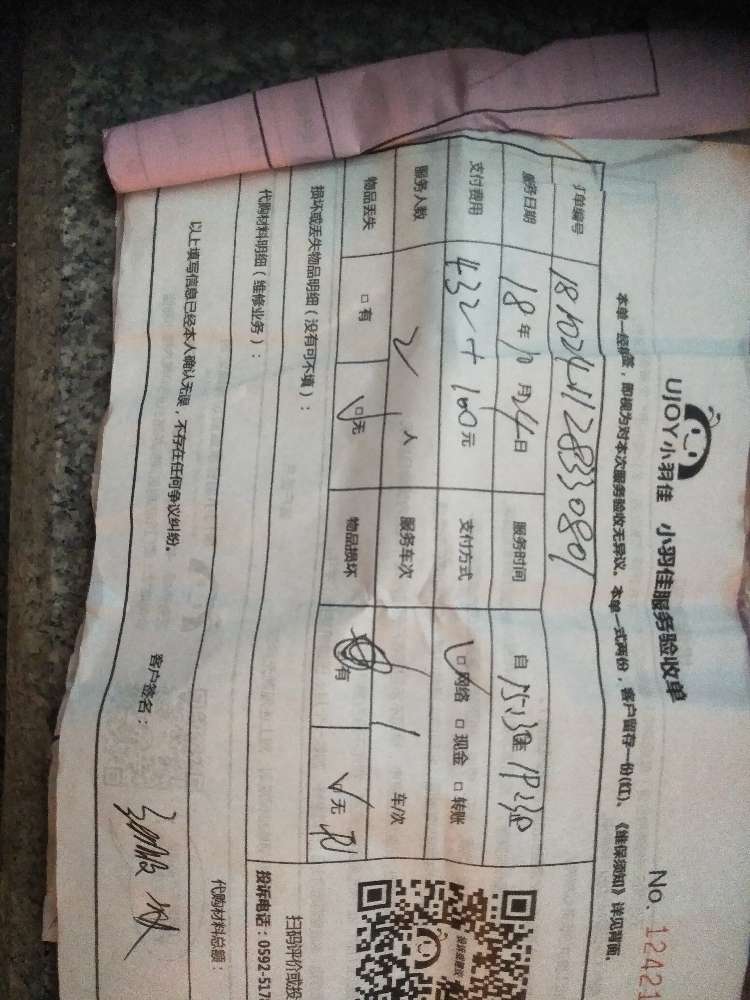 UJOY小羽佳 小羽佳服务验收单
No. 12421
本单一经签,即视为对本次服务验收无异议。本单一式两份,客户留存一份(红)。《维保须知》详见背面。
订单编号 18102411283
服务日期 18年10月24日 服务时间 自
支付费用 432+100元 支付方式 □网络 □现金 □转账
服务人数 2人 服务车次 1 车/次
物品丢失 □有 □无 物品损坏 有 无
损坏或丢失物品明细(没有可不填):
代购材料明细(维修业务):
代购材料总额:
以上填写信息已经本人确认无误,不存在任何争议纠纷。
客户签名:
扫码评价或投
投诉电话:0592-517